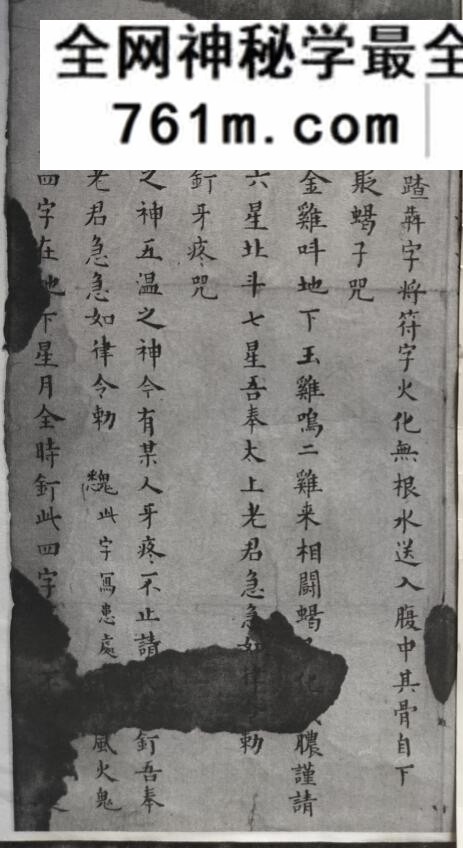 全网神秘学最全
761m.com
踏犇字将符字火化無根水送入腹中其骨自下
蝎子咒
金雞呌地下玉雞鳴二雞来相鬪蝎化膿謹請
六星北斗七星吾奉太上老君急急如律令勅
釘牙疼咒
之神五温之神今有某人牙疼不止請釘吾奉
老君急急如律令勅 此字寫患處風火鬼
四字在地下星月全時釘此四字